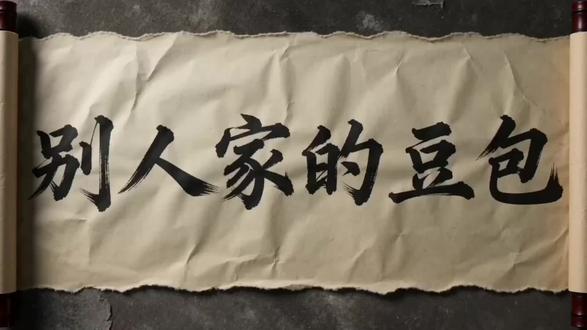 别人家的豆包